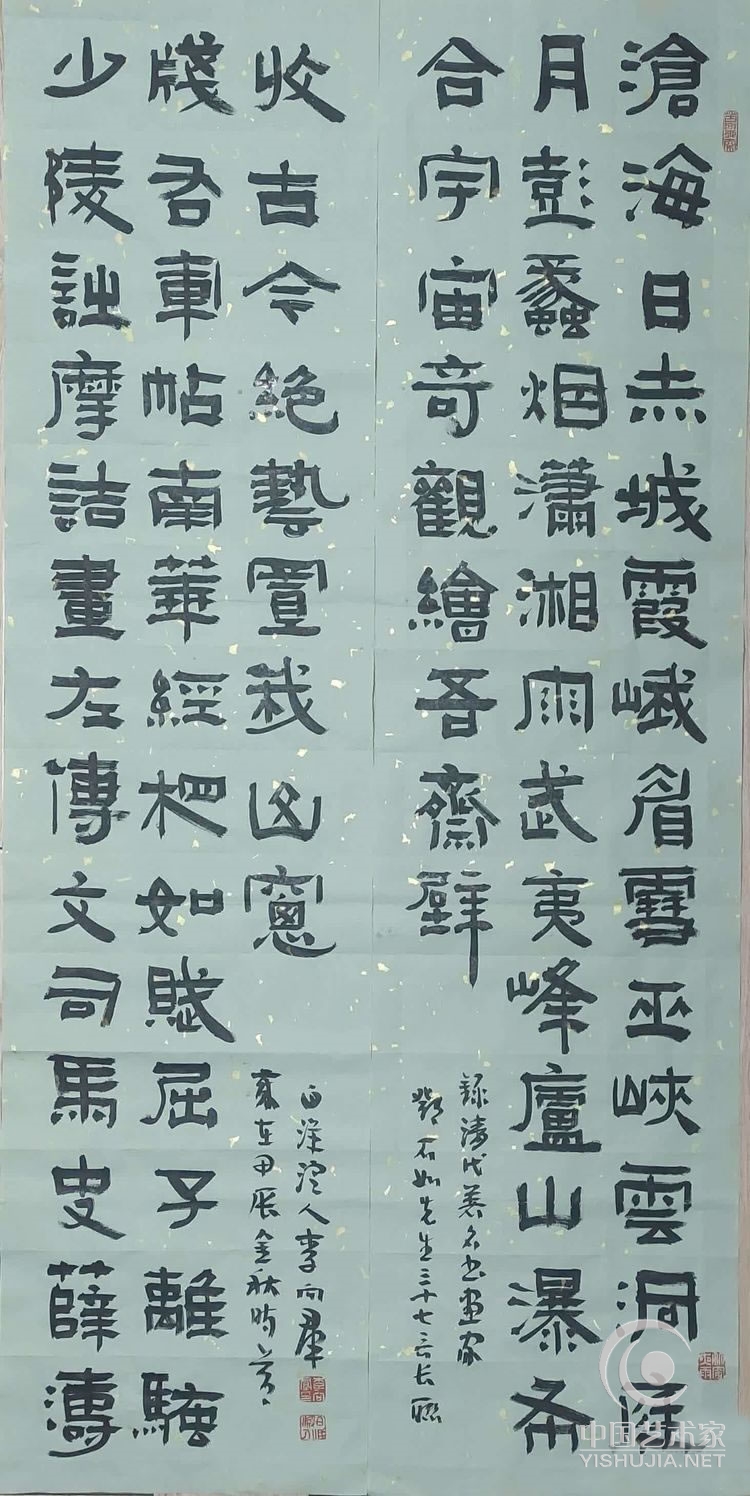 滄海日赤城霞峨眉雪巫峽雲洞庭
月彭蠡烟瀟湘雨武夷峰廬山瀑布
合宇宙奇觀繪吾齋壁
錄清代著名书画家
鄧石如先生三十七言长聯
少陵詩摩詰畫左傳文司馬史薛濤
牋右軍帖南華經相如賦屈子離騷
收古今絕藝置我山窗
白洋淀人李向群
歲在甲辰金秋时
中国艺术家
YISHUJIA.NET